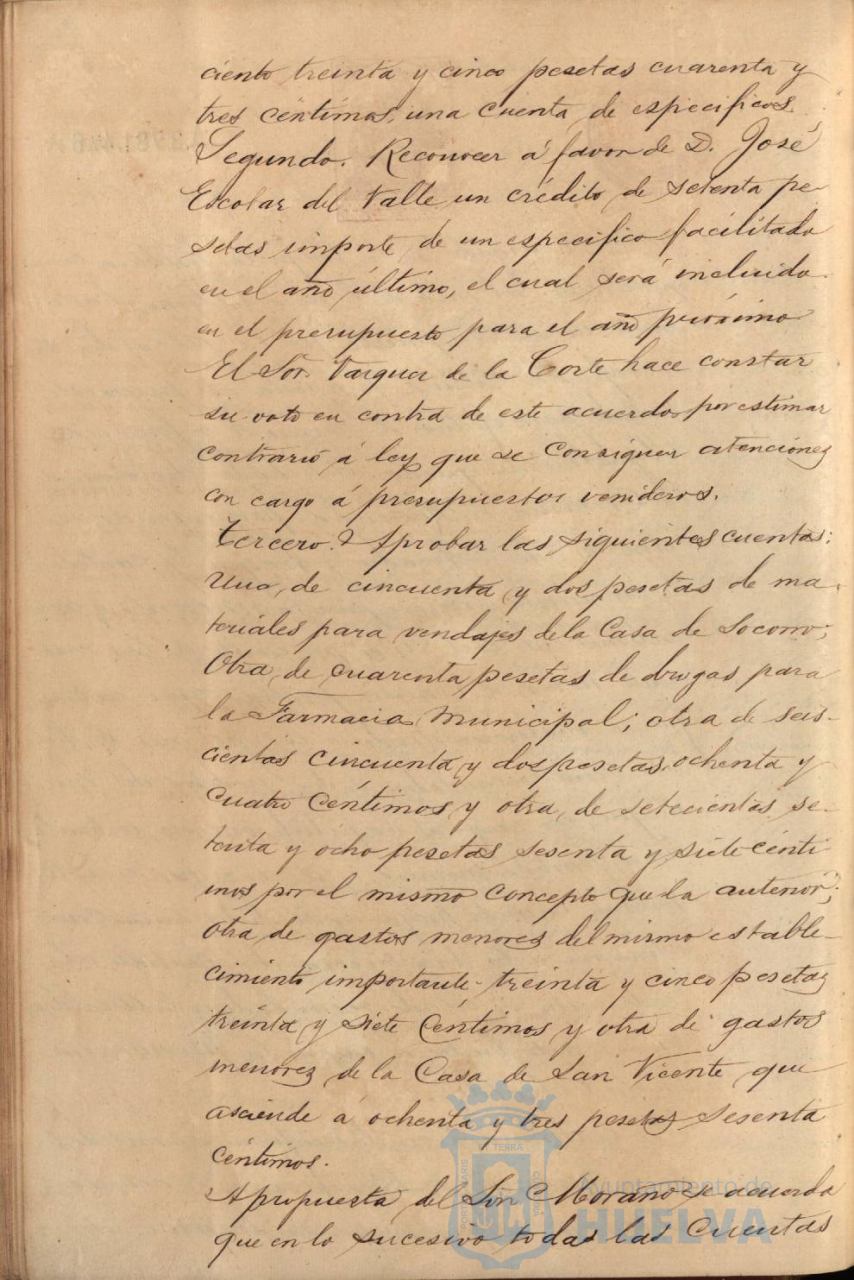 ciento treinta y cinco pesetas cuarenta y
tres céntimos, una cuenta de específicos.
Segundo. Reconocer á favor de D. José
Escolar del Valle un crédito de setenta pe-
setas importe de un específico facilitado
en el año último, el cual será incluido
en el presupuesto para el año próximo
El Sor. Vazquez de la Corte hace constar
su voto en contra de este acuerdo por estimar
contrario á ley que se consignen atenciones
con cargo á presupuestos venideros.
Tercero. Aprobar las siguientes cuentas:
Una, de cincuenta y dos pesetas de ma-
teriales para vendajes de la Casa de Socorro;
Otra, de cuarenta pesetas de drogas para
la Farmacia Municipal; otra de seis-
cientas cincuenta y dos pesetas, ochenta y
cuatro céntimos y otra, de setecientas se-
tenta y ocho pesetas sesenta y siete cénti
mos por el mismo concepto que la anterior;
otra de gastos menores del mismo estable-
cimiento importante treinta y cinco pesetas
treinta y siete céntimos y otra de gastos
menores de la Casa de San Vicente que
asciende á ochenta y tres pesetas sesenta
céntimos.
A propuesta del Sor. Morano se acuerda
que en lo sucesivo todas las cuentas
TERRA
Ayuntamiento de
HUELVA